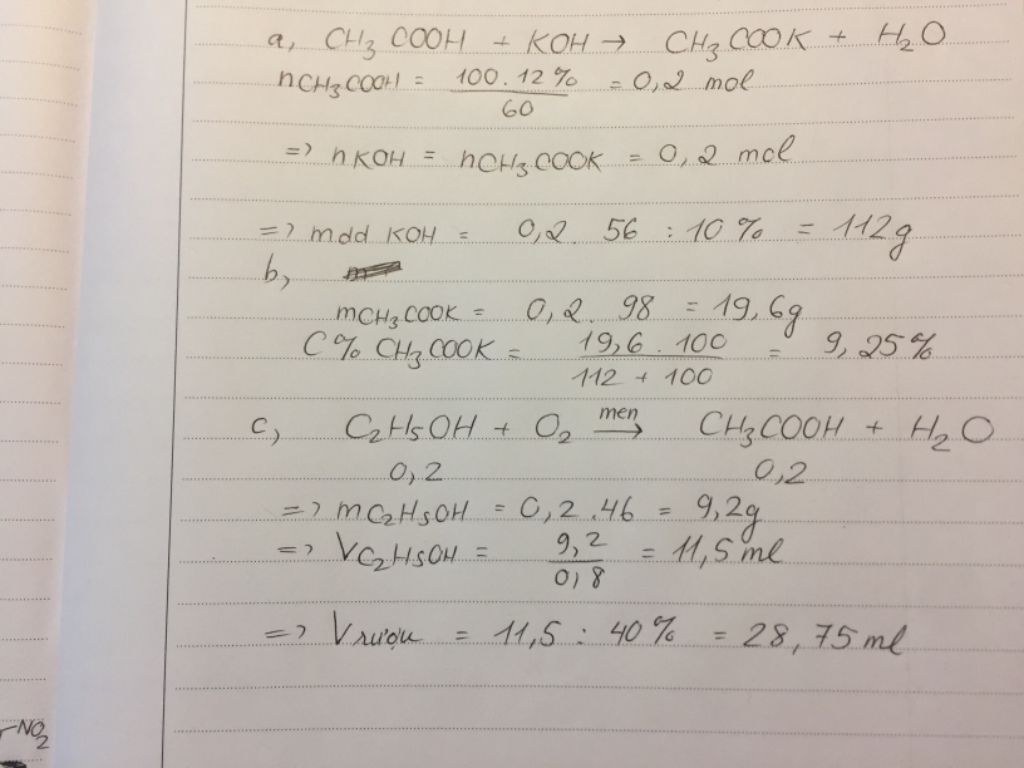 a, CH3 COOH + KOH → CH3COOK + H2O
nCH3COOH = 100.12% / 60 = 0,2 mol
=> nKOH = nCH3COOK = 0,2 mol
=> mdd KOH = 0,2. 56 : 10% = 112g
b,
mCH3COOK = 0,2. 98 = 19,6g
C% CH3COOK = 19,6.100 / 112 + 100 = 9,25%
c, C2H5OH + O2 men → CH3COOH + H2O
0,2 0,2
=> mC2H5OH = 0,2.46 = 9,2g
=> VC2H5OH = 9,2 / 0,8 = 11,5ml
=> Vrượu = 11,5 : 40% = 28,75ml
-NO2